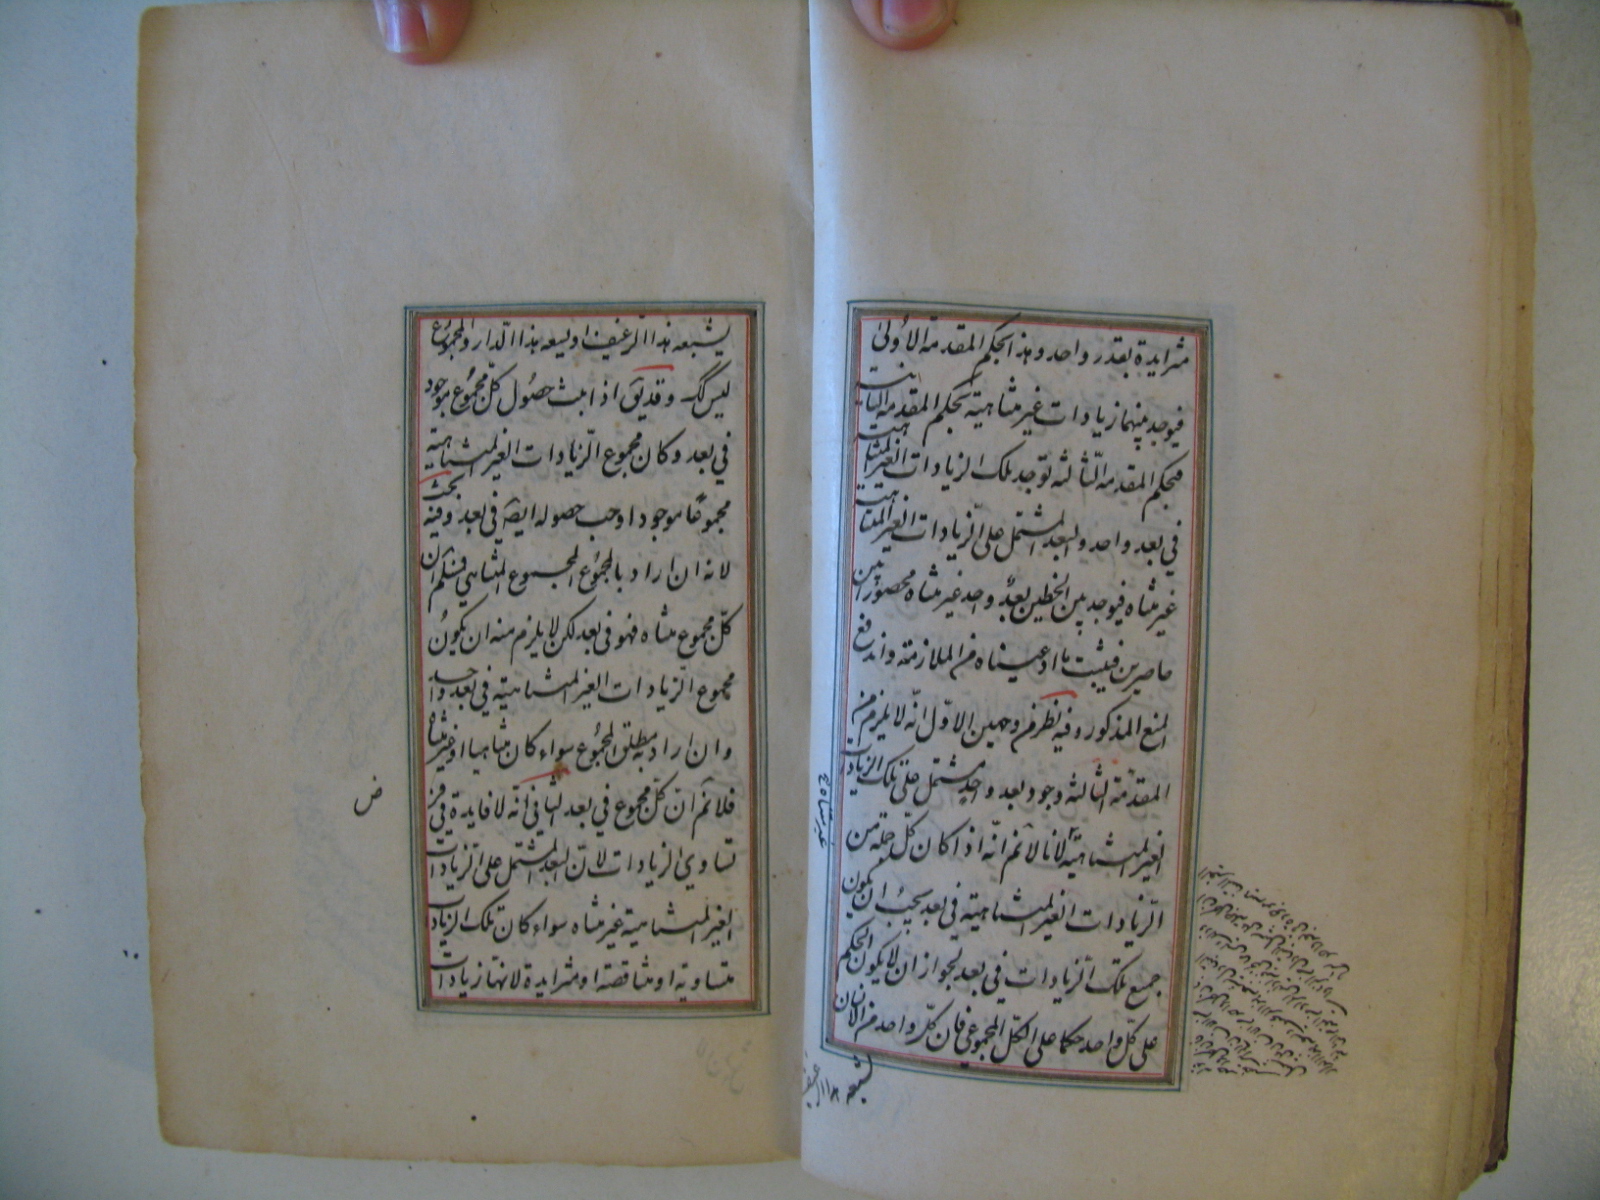 متزايدة بقدر واحد وهذا بحكم المقدمة الأولى
فيوجد بينهما زيادات غير متناهية بحكم المقدمة الثانية
فبحكم المقدمة الثالثة توجد تلك الزيادات الغير المتناهية
في بعد واحد والبعد المشتمل على الزيادات الغير المتناهية
غير متناه فيوجد بين الخطين بعد واحد غير متناه محصورا بين
حاصرين فيثبت ما ادعيناه من الملازمة واندفع
المنع المذكور وفيه نظر من وجهين الاول انه لا يلزم من
المقدمة الثالثة وجود بعد واحد مشتمل على تلك الزيادات
الغير المتناهية لأنا لا نم انه اذا كان كل جملة من
الزيادات الغير المتناهية في بعد يجب ان يكون
جميع تلك الزيادات في بعد لجواز ان لا يكون الحكم
على كل واحد حكما على الكل المجموعي فان كل واحد من الانسان
يشبعه هذا الرغيف
غير متناه
يشبعه هذا الرغيف او يسعه هذا الدار والمجموع
ليس كك وقد يق اذا ثبت حصول كل مجموع موجود
في بعد وكان مجموع الزيادات الغير المتناهية
مجموعا موجودا وجب حصوله ايضا في بعد وفيه بحث
لانه ان اراد بالمجموع المجموع المتناهي فنسلم ان
كل مجموع متناه فهو في بعد لكن لا يلزم منه ان يكون
مجموع الزيادات الغير المتناهية في بعد واحد
وان اراد به مطلق المجموع سواء كان متناهيا او غير متناه
فلا نم ان كل مجموع في بعد الثاني انه لا فايدة في فرض
تساوي الزيادات لان البعد المشتمل على الزيادات
الغير المتناهية غير متناه سواء كان تلك الزيادات
متساوية او متناقصة او متزايدة لانها زيادات
ض